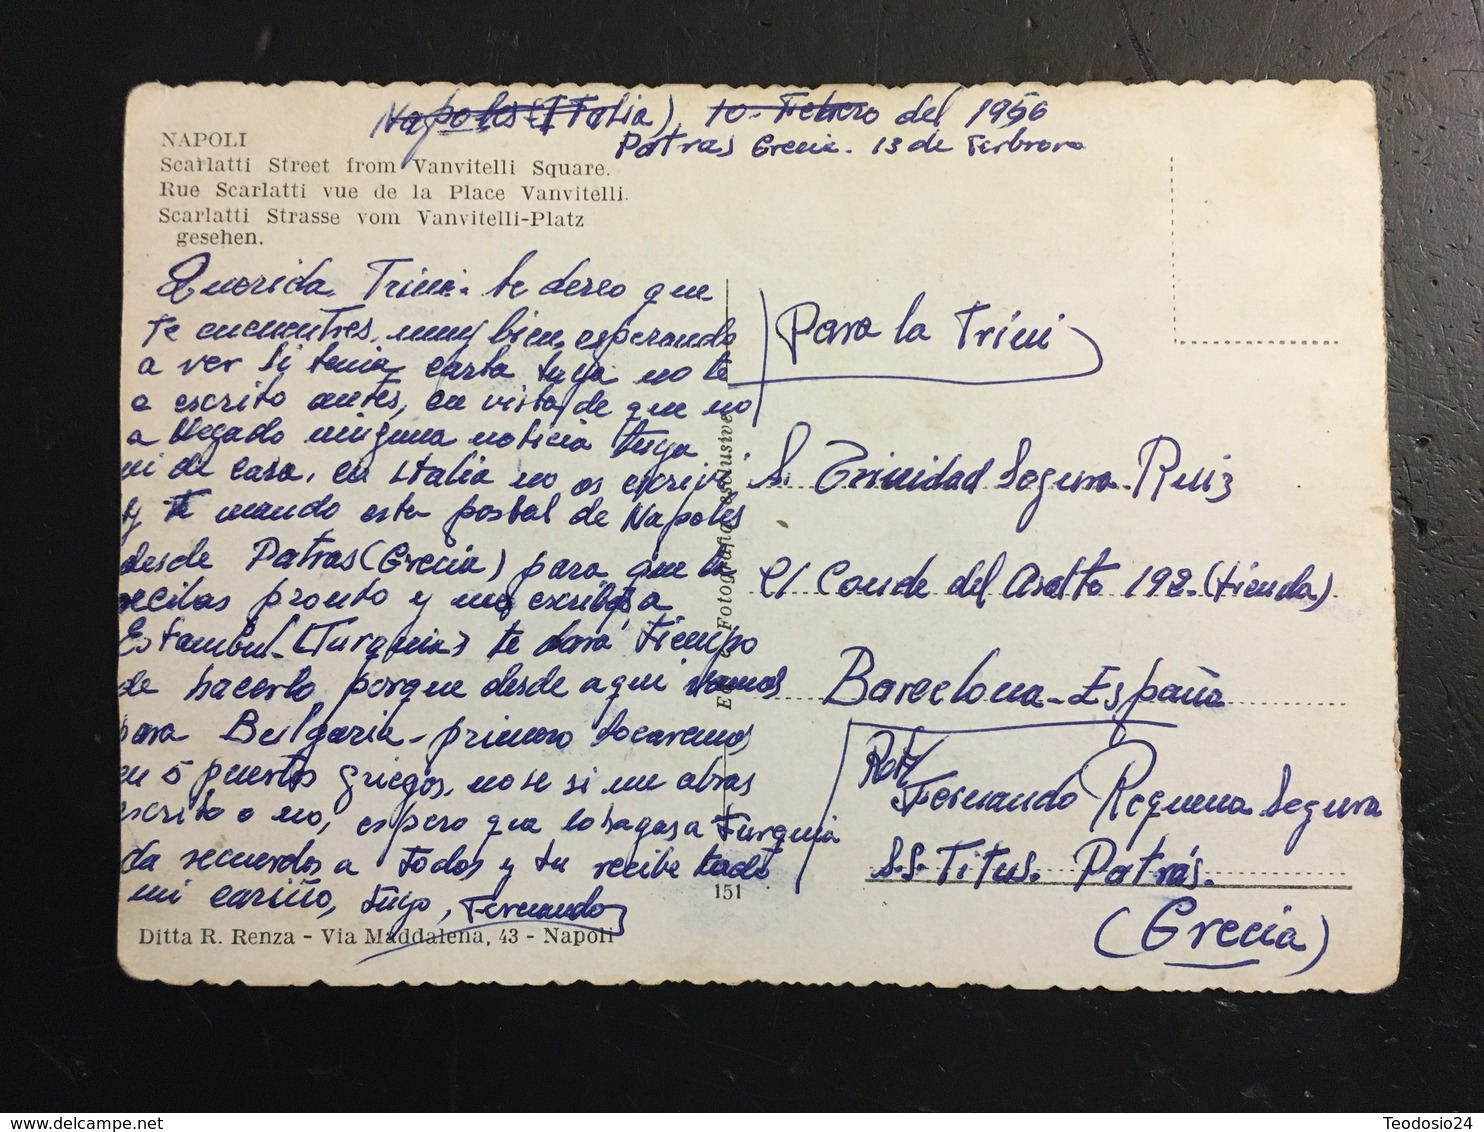 Napoles (Italia), 10-Febrero del 1956
Patras Grecia. 13 de Febrero
NAPOLI
Scarlatti Street from Vanvitelli Square.
Rue Scarlatti vue de la Place Vanvitelli.
Scarlatti Strasse vom Vanvitelli-Platz
gesehen.
Querida Trini. te deseo que
te encuentres muy bien, esperando
a ver si tenia carta tuya no te
e escrito antes, en vista de que no
a llegado ninguna noticia tuya
ni de casa, en Italia no os escrivi
y te mando esta postal de Napoles
desde Patras (Grecia) para que la
recibas pronto y me escribas a
Estambul (Turquia) te dara tiempo
de hacerlo porque desde aqui vamos
para Bulgaria, primero tocaremos
en 5 puertos griegos, no se si me abras
escrito o no, espero que lo hagas a Turquia
da recuerdos a todos y tu recibe todo
mi cariño, tuyo, Fernando
Ditta R. Renza - Via Maddalena, 43 - Napoli
Fotografia esclusive
151
Para la Trini
S. Trinidad Segura Ruiz
C/ Conde del Asalto 192. (tienda)
Barcelona - España
Fernando Requena Segura
S.S. Titus. Patrás.
(Grecia)
Teodosio24